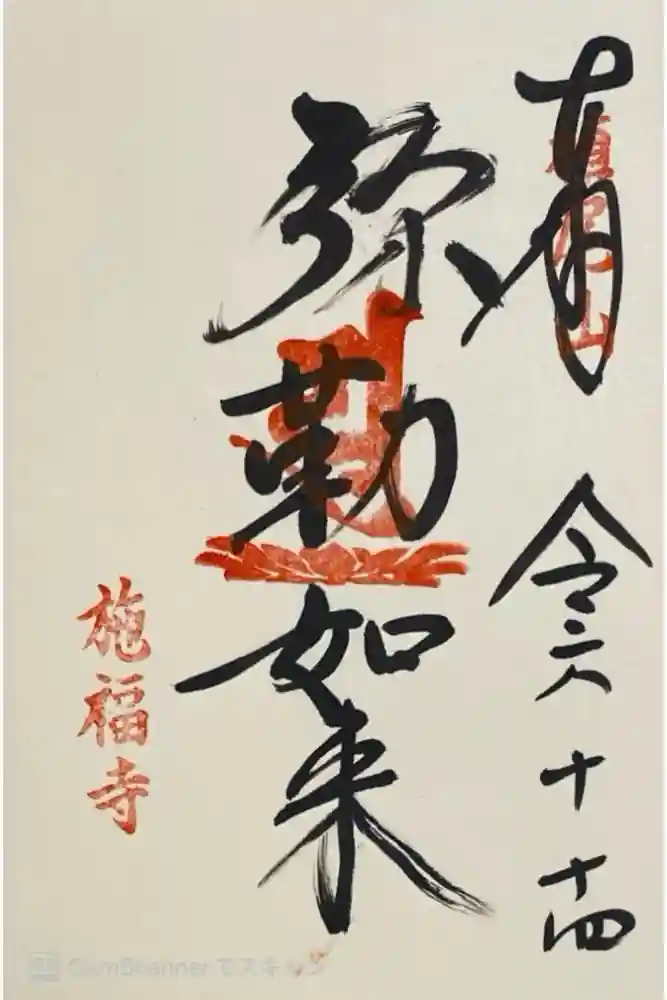 令六 十 十四
弥勒如来
施福寺
CamScanner でスキャン